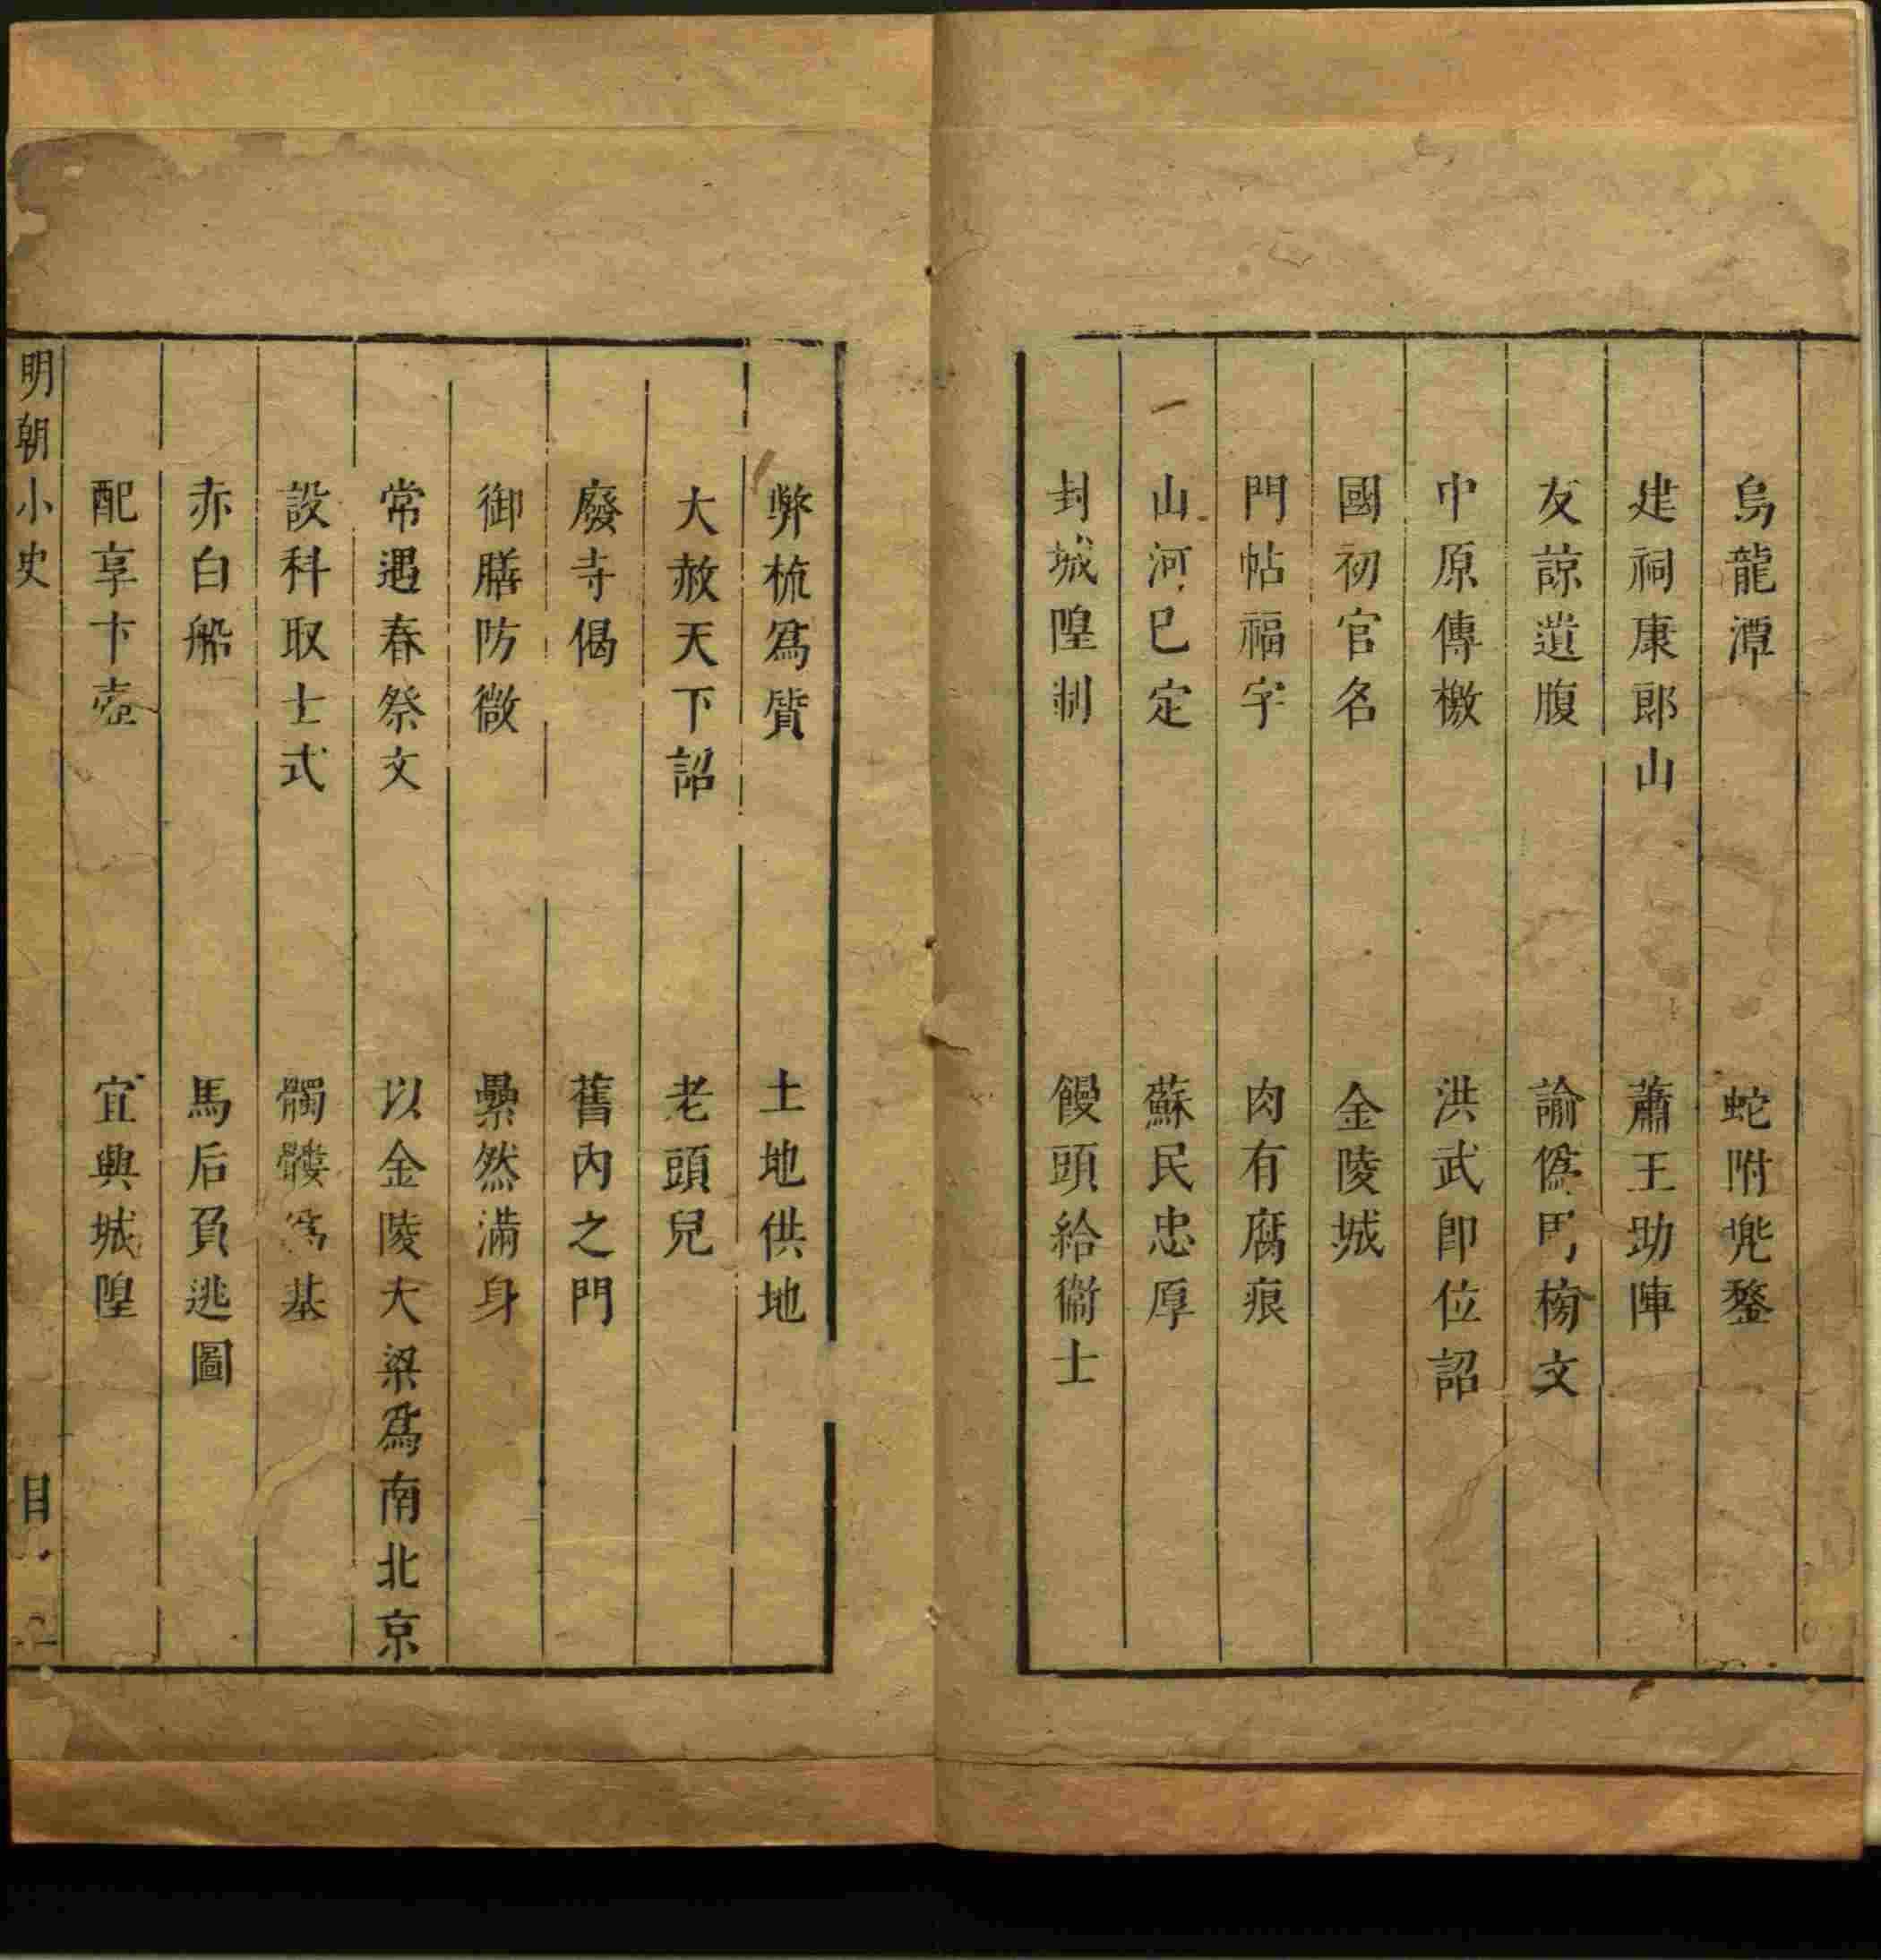 烏龍潭　蛇附兠鍪
建祠康郎山　蕭王助陣
友諒遺腹　諭僞周榜文
中原傳檄　洪武即位詔
國初官名　金陵城
門帖福字　肉有腐痕
山河已定　蘇民忠厚
封城隍制　饅頭給衞士
弊梳爲贄　土地供地
大赦天下詔　老頭兒
廢寺偈　舊內之門
御膳防微　纍然滿身
常遇春祭文　以金陵大梁爲南北京
設科取士式　髑髏爲基
赤白船　馬后負逃圖
配享卞壺　宜興城隍
明朝小史　目